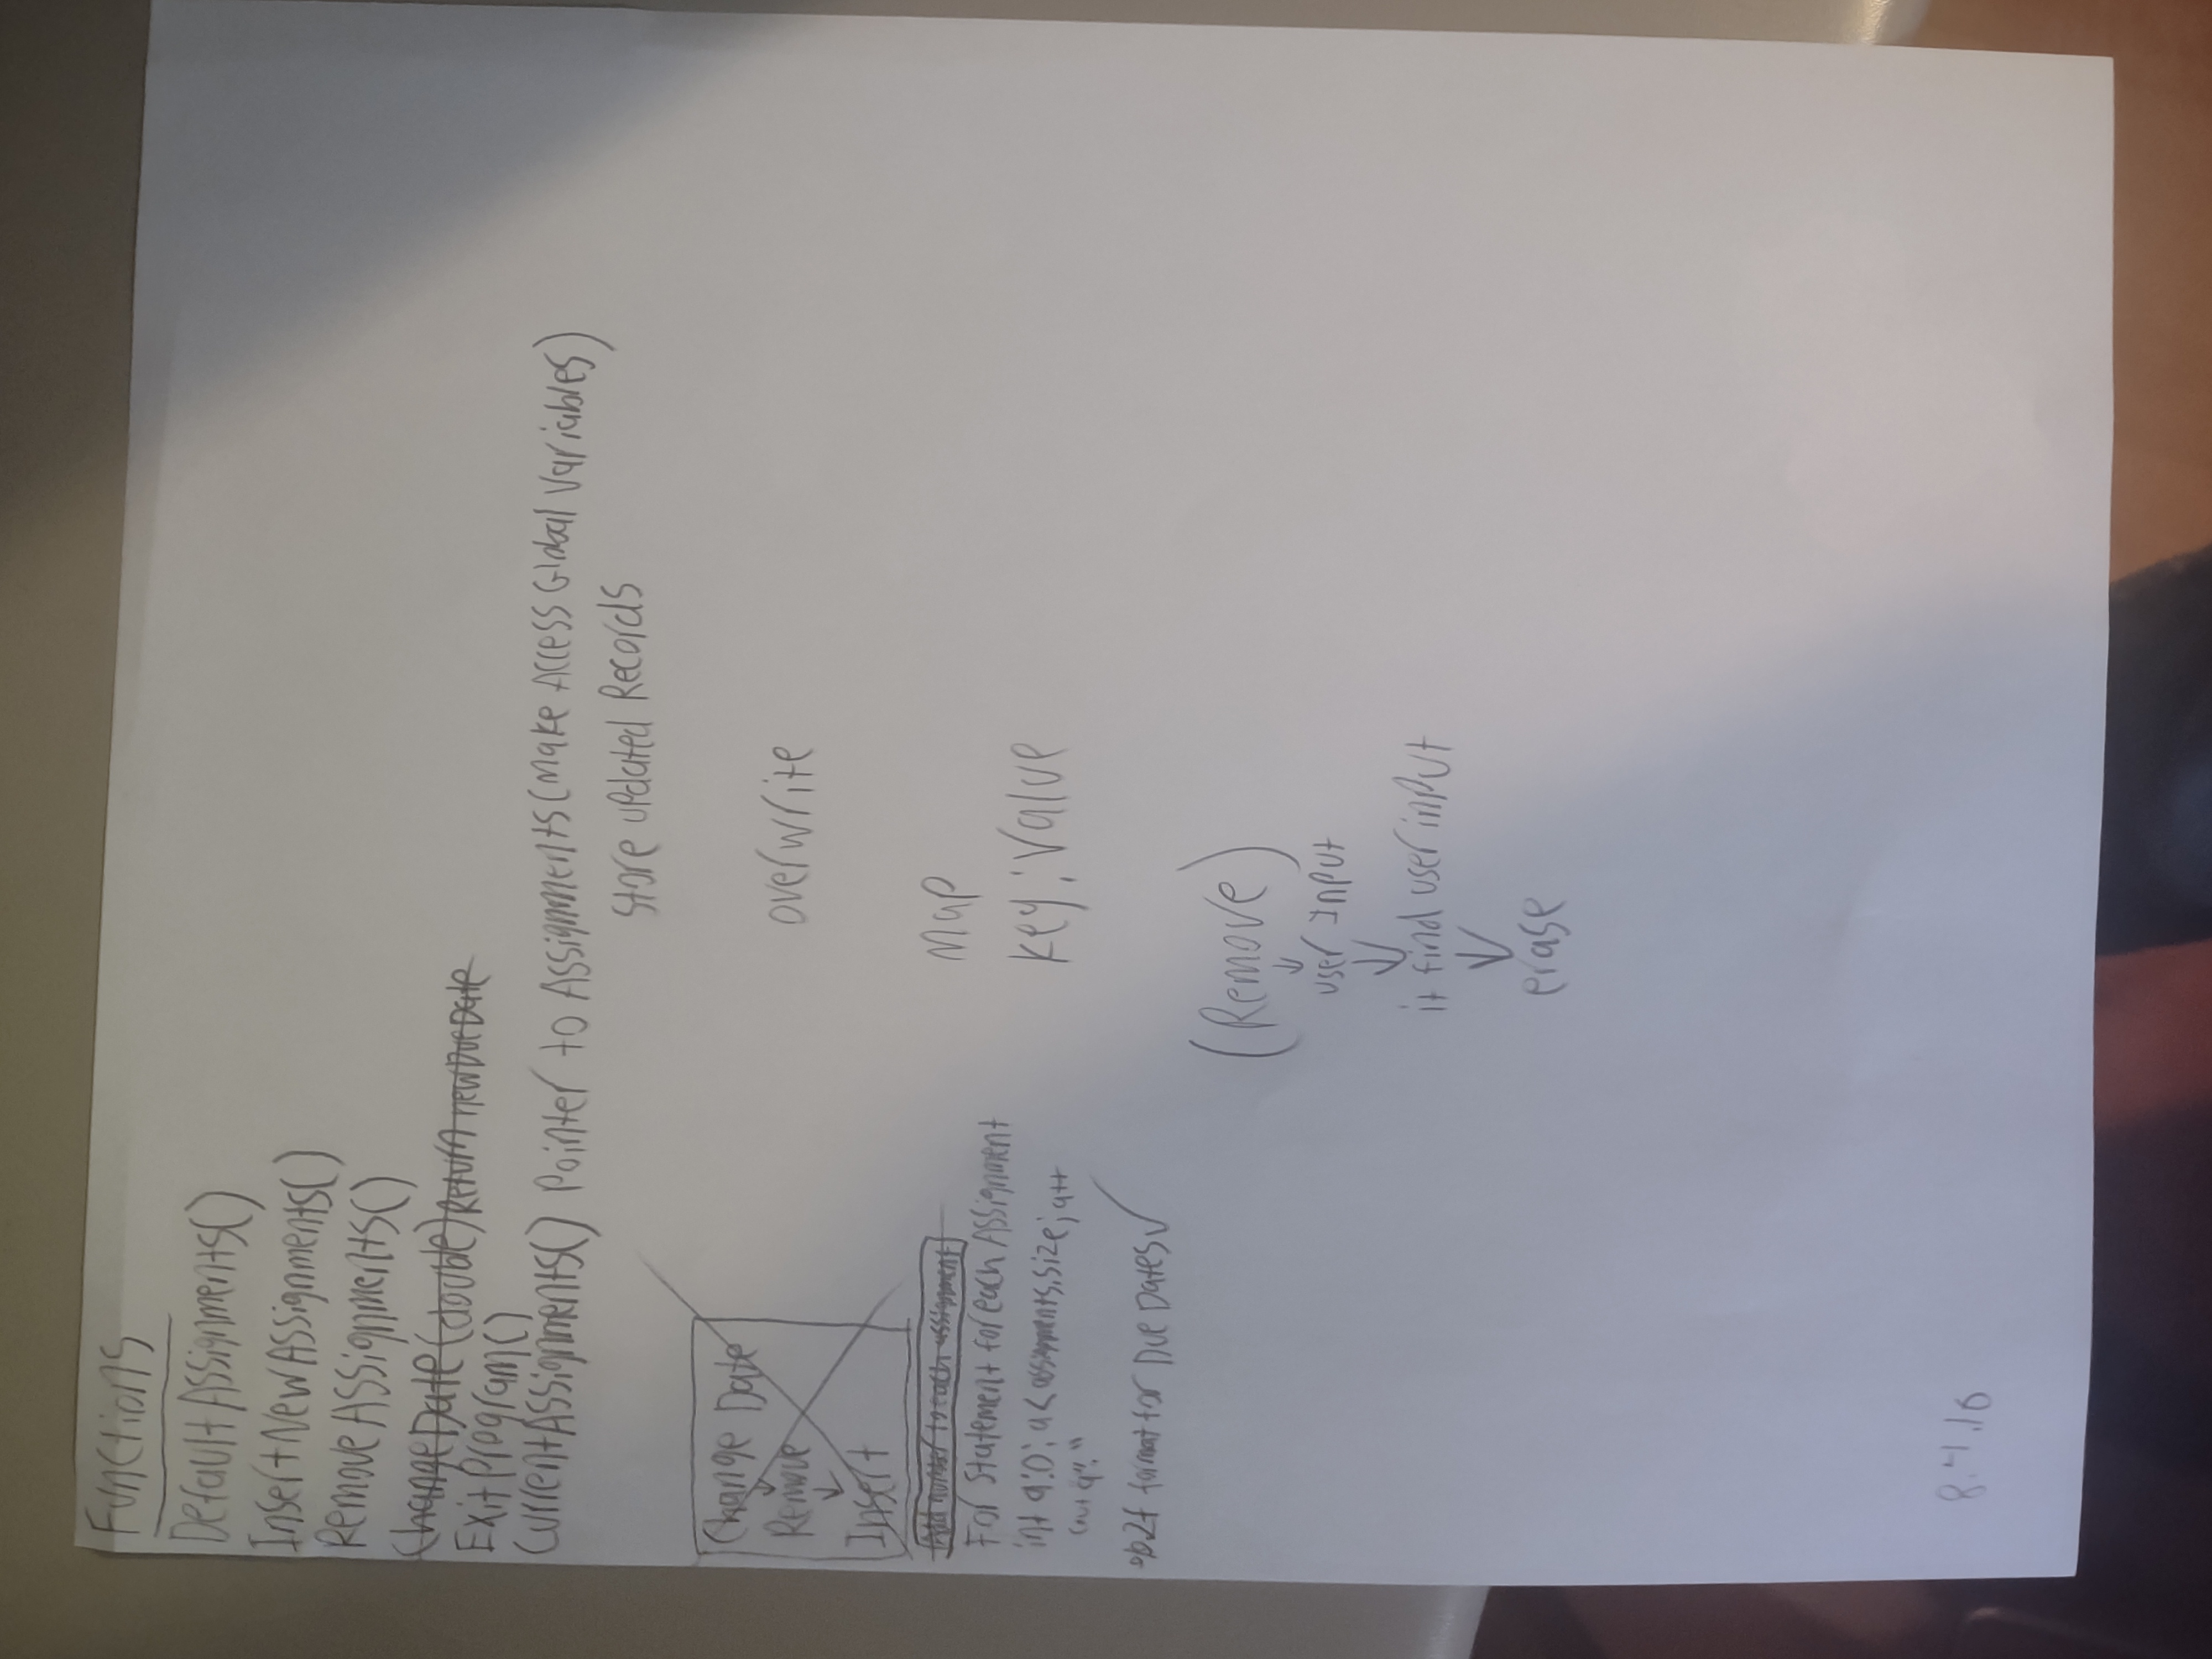 Functions
DefaultAssignments()
InsertNewAssignments()
RemoveAssignments()
ChangeDate(double) Return newDueDate
ExitProgram()
CurrentAssignments() Pointer to Assignments (Make Access Global Variables)
Store updated Records
Change Date
↓
Remove
↓
Insert
overwrite
Add number to each assignment
Map
For Statement for each Assignment
key:Value
int a:0; a< assignments.size; a++
cout a". "
%.2f format for Due Dates ✓
(Remove)
↓
user Input
↓
it find user input
↓
erase
8.4.10